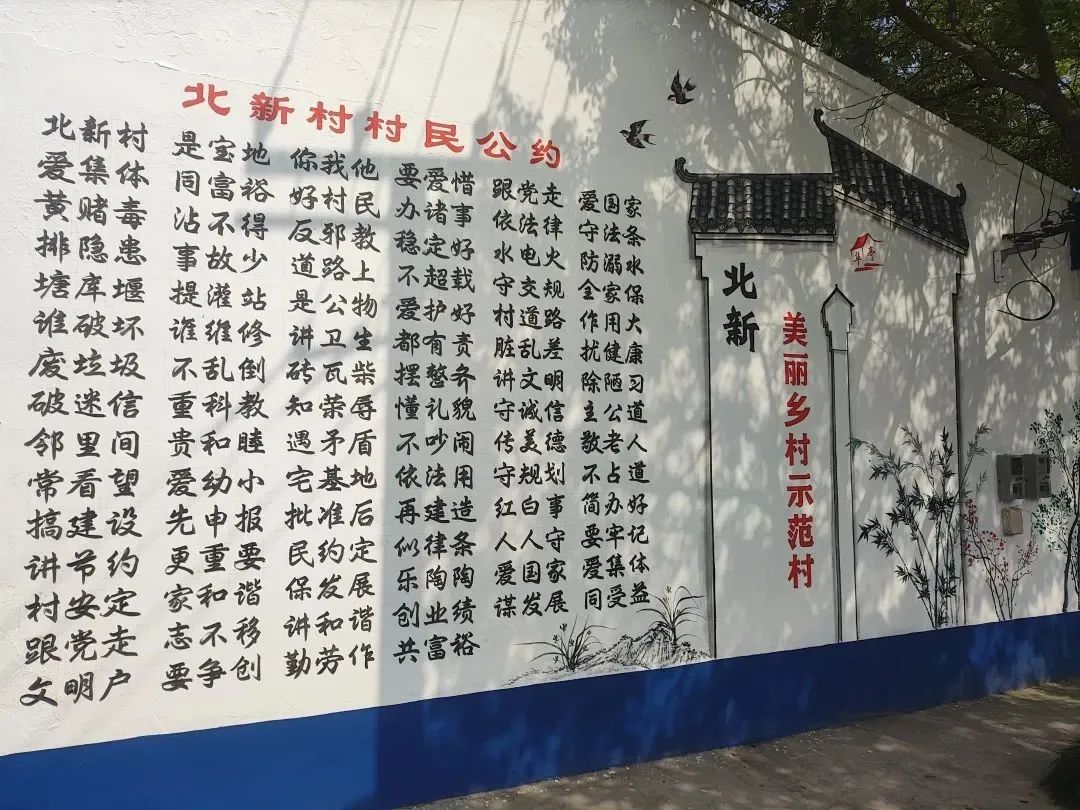 北新村村民公约
北新村 是宝地 你我他 要爱惜 跟党走 爱国家
爱集体 同富裕 好村民 办诸事 依法律 守法条
黄赌毒 沾不得 反邪教 稳定好 水电火 防溺水
排隐患 事故少 道路上 不超载 守交规 全家保
塘库堰 提灌站 是公物 爱护好 村道路 作用大
谁破坏 谁维修 讲卫生 都有责 脏乱差 扰健康
废垃圾 不乱倒 砖瓦柴 摆整齐 讲文明 除陋习
破迷信 重科教 知荣辱 懂礼貌 守诚信 主公道
邻里间 贵和睦 遇矛盾 不吵闹 传美德 敬老人
常看望 爱幼小 宅基地 依法用 守规划 不占道
搞建设 先申报 批准后 再建造 红白事 简办好
讲节约 更重要 民约定 似律条 人人守 要牢记
村安定 家和谐 保发展 乐陶陶 爱国家 爱集体
跟党走 志不移 讲和谐 创业绩 谋发展 同受益
文明户 要争创 勤劳作 共富裕
华亭
北新
美丽乡村示范村